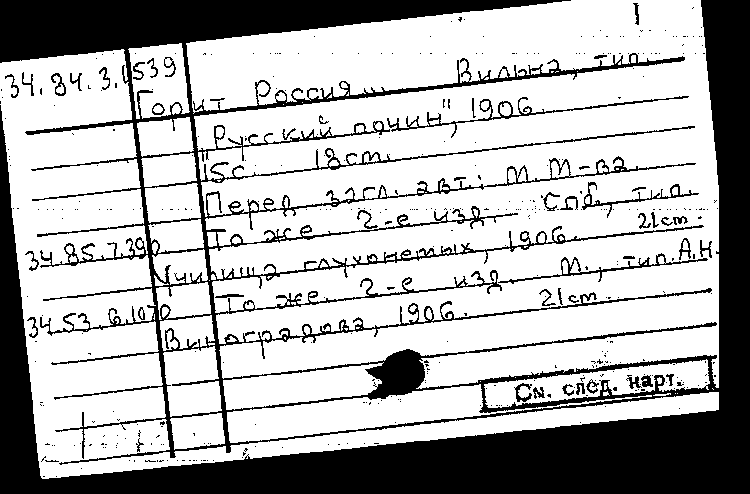 I
34.84.3.1539
Горит Россия... Вильна, тип.
"Русский почин", 1906.
15с. 18cm.
Перед загл. авт.: М. М-ва.
34.85.7.390 То же. 2-е изд. Спб, тип.
Училища глухонемых, 1906. 21cm.
34.53.6.1070 То же. 2-е изд. М., тип. А.Н.
Виноградова, 1906. 21cm.
См. след. карт.